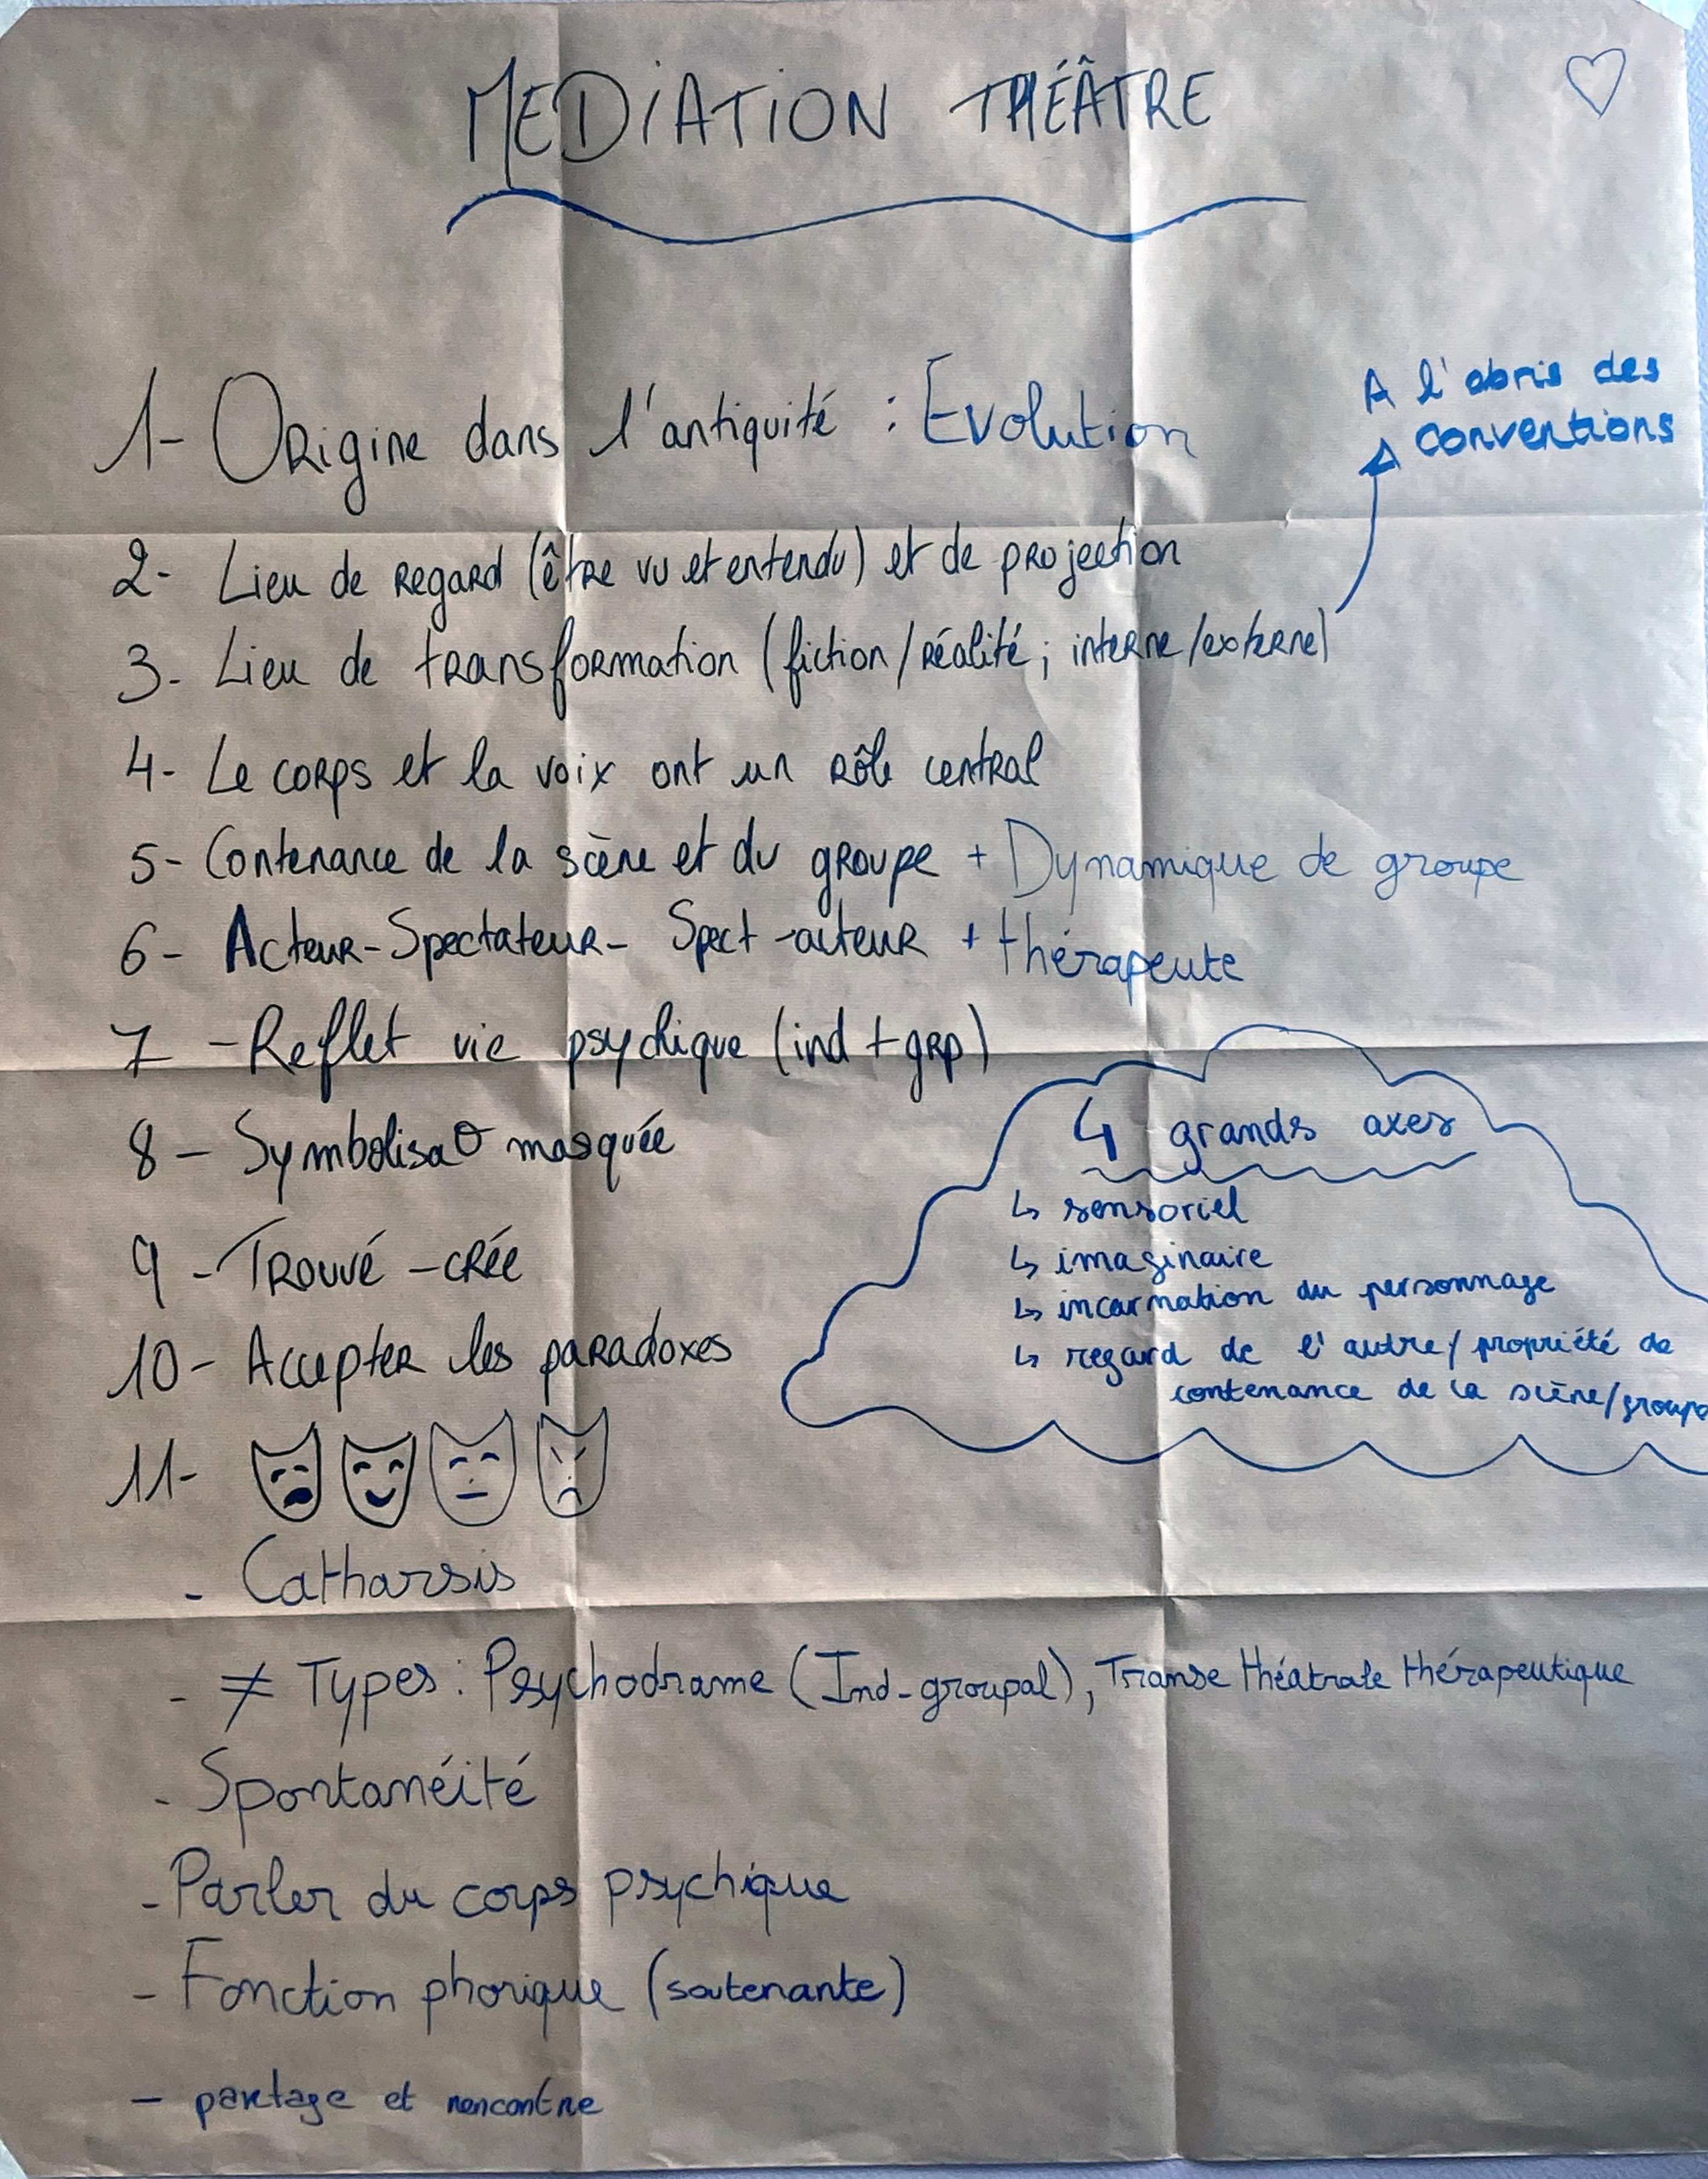 MEDIATION THÉÂTRE
1- Origine dans l'antiquité : Evolution
A l'abris des
conventions
2- Lieu de regard (être vu et entendu) et de projection
3- Lieu de transformation (fiction/réalité ; interne/externe)
4- Le corps et la voix ont un rôle central
5- Contenance de la scène et du groupe + Dynamique de groupe
6- Acteur-Spectateur- Spect-acteur + thérapeute
7 - Reflet vie psychique (ind + grp)
8 - Symbolisaθ masquée
9 - Trouvé - crée
10 - Accepter les paradoxes
11-
4 grands axes
↳ sensoriel
↳ imaginaire
↳ incarnation du personnage
↳ regard de l'autre / propriété de
contenance de la scène/groupe
- Catharsis
- ≠ Types : Psychodrame (Ind-groupal), Transe théatrale thérapeutique
- Spontanéité
- Parler du corps psychique
- Fonction phorique (soutenante)
- partage et rencontre